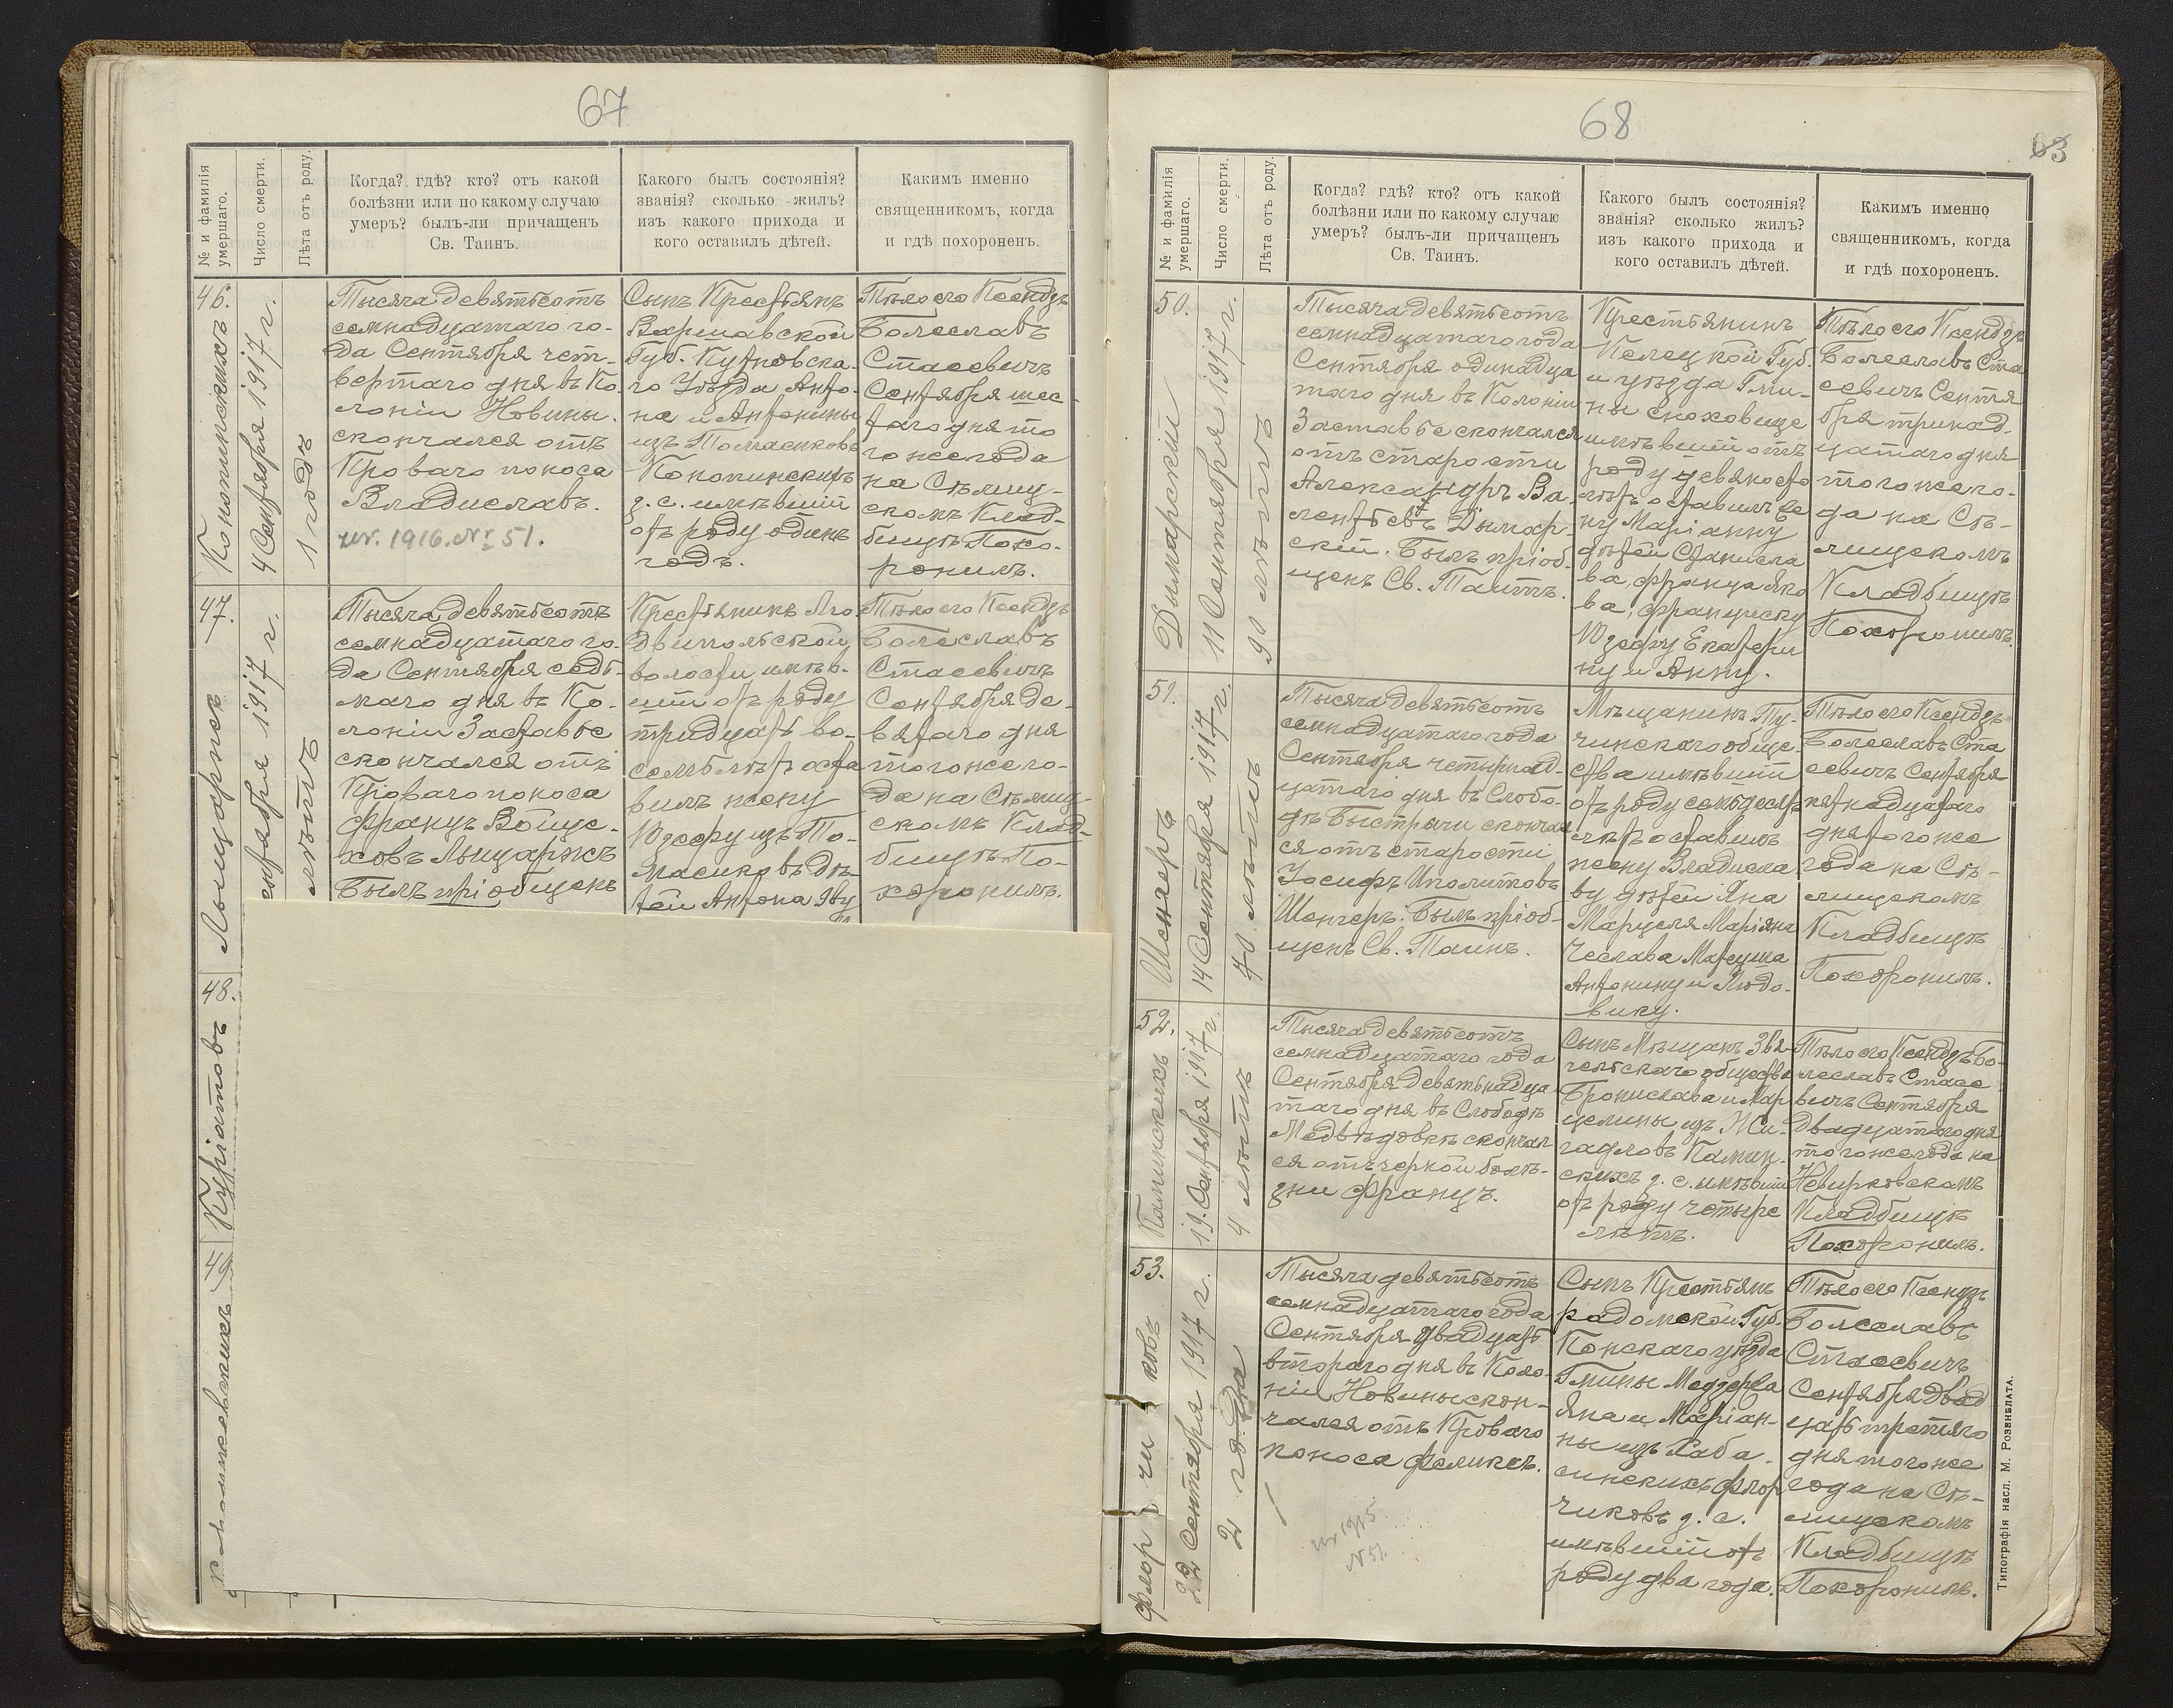 67
№ и фамилія
умершаго.
Число смерти.
Лѣта отъ роду.
Когда? гдѣ? кто? отъ какой
болѣзни или по какому случаю
умеръ? былъ-ли причащенъ
Св. Таинъ.
Какого былъ состоянія?
званія? сколько жилъ?
изъ какого прихода и
кого оставилъ дѣтей.
Какимъ именно
священникомъ, когда
и гдѣ похороненъ.
46.
Конопинскихъ
4 Сентября 1917 г.
1 годъ
Тысяча девятьсотъ
семнадцатаго го-
да Сентября чет-
вертаго дня въ Ко-
лоніи Новины
скончался отъ
Кроваго поноса
Владиславъ.
ur. 1916. Nr 51.
Сынъ Крестьянъ
Варшавской
Губ. Кутновска-
го Уѣзда Анто-
на и Антонины
изъ Томасиковъ
Конопинскихъ
з. с. имѣвшій
отъ роду одинъ
годъ.
Тѣло его Ксендзъ
Болеславъ
Стасевичъ
Сентября шес-
таго дня то
го же года
на Сѣлищ-
скомъ Клад-
бищѣ Похо-
ронилъ.
47.
Лыщаржъ
Сентября 1917 г.
лѣтъ
Тысяча девятьсотъ
семнадцатаго го-
да Сентября седь-
маго дня въ Ко-
лоніи Заставье
скончался отъ
Кроваго поноса
Францъ Войце-
ховъ Лыщаржъ
Былъ пріобщенъ
Крестьянинъ Лю-
двипольской
волости, имѣв-
шій отъ роду
тридцать во-
семь лѣтъ оста
вилъ жену
Юзефу изъ То-
масиковъ дѣ-
тей Антона Яву
Тѣло его Ксендзъ
Болеславъ
Стасевичъ
Сентября де-
вятаго дня
того же го-
да на Сѣлищ-
скомъ Клад-
бищѣ По-
хоронилъ.
48.
Купріатовъ
49
68
63
№ и фамилія
умершаго.
Число смерти.
Лѣта отъ роду.
Когда? гдѣ? кто? отъ какой
болѣзни или по какому случаю
умеръ? былъ-ли причащенъ
Св. Таинъ.
Какого былъ состоянія?
званія? сколько жилъ?
изъ какого прихода и
кого оставилъ дѣтей.
Какимъ именно
священникомъ, когда
и гдѣ похороненъ.
50.
Дымарскій
11 Сентября 1917 г.
90 лѣтъ
Тысяча девятьсотъ
семнадцатаго года
Сентября одинадца
таго дня въ Колоніи
Заставье скончался
отъ старости
Александръ Ва-
лентьевъ Дымар-
скій. Былъ пріоб-
щенъ Св. Таинъ.
Крестьянинъ
Келецкой Губ.
и уѣзда Гми-
ны Сноховице
имѣвшій отъ
роду девяносто
лѣтъ оставилъ же
ну Маріанну
дѣтей Станисла
ва, Франца Яко
ва, Франциску
Юзефу Екатери
ну и Анну.
Тѣло его Ксендзъ
Болеславъ Ста
севичъ Сентя
бря тринад-
цатаго дня
того же го-
да на Сѣ-
лищскомъ
Кладбищѣ
Похоронилъ.
51.
Шенгеръ
14 Сентября 1917 г.
70 лѣтъ
Тысяча девятьсотъ
семнадцатаго года
Сентября четырнад-
цатаго дня въ Слобо-
дѣ Быстричи скончал
ся отъ старости
Іосифъ Иполитовъ
Шенгеръ. Былъ пріоб-
щенъ Св. Таинъ.
Мѣщанинъ Ту-
чинскаго общес-
тва имѣвшій
отъ роду семьдесятъ
лѣтъ оставилъ
жену Владисла
ву дѣтей Яна
Марцеля Маріяна
Чеслава Матеуша
Антонину и Людо-
вику.
Тѣло его Ксендзъ
Болеславъ Ста
севичъ Сентября
пятнадцатаго
дня того же
года на Сѣ-
лищскомъ
Кладбищѣ
Похоронилъ.
52.
Каминскихъ
19. Сентября 1917 г.
4 лѣтъ
Тысяча девятьсотъ
семнадцатаго года
Сентября девятьнадца-
таго дня въ Слободѣ
Медвѣдовкѣ скончал
ся отъ черной болѣ-
зни Францъ.
Сынъ Мѣщанъ Звя-
гельскаго общества
Бронислава и Мар
целины изъ Жи-
гадловъ Камин-
скихъ з. с. имѣвшій
отъ роду четыре
лѣтъ.
Тѣло его Ксендзъ Бо-
леславъ Стасе
вичъ Сентября
двадцатаго дня
того же года на
Невирковскомъ
Кладбищѣ
Похоронилъ.
53.
Флорчиковъ
22 Сентября 1917 г.
2 года
Тысяча девятьсотъ
семнадцатаго года
Сентября двадцать
втораго дня въ Коло-
ніи Новины скон-
чался отъ Кроваго
поноса Феликсъ.
ur 1915
N 51.
Сынъ Крестьянъ
радомской Губ.
Конскаго уѣзда
Гмины Медзержа
Яна и Маріан-
ны изъ Лаба-
синскихъ Флор
чиковъ з. с.
имѣвшій отъ
роду два года.
Тѣло его Ксендзъ
Болеславъ
Стасевичъ
Сентября двад
цать третяго
дня того же
года на Сѣ-
лищскомъ
Кладбищѣ
Похоронилъ.
Типографія насл. М. Розенблата.